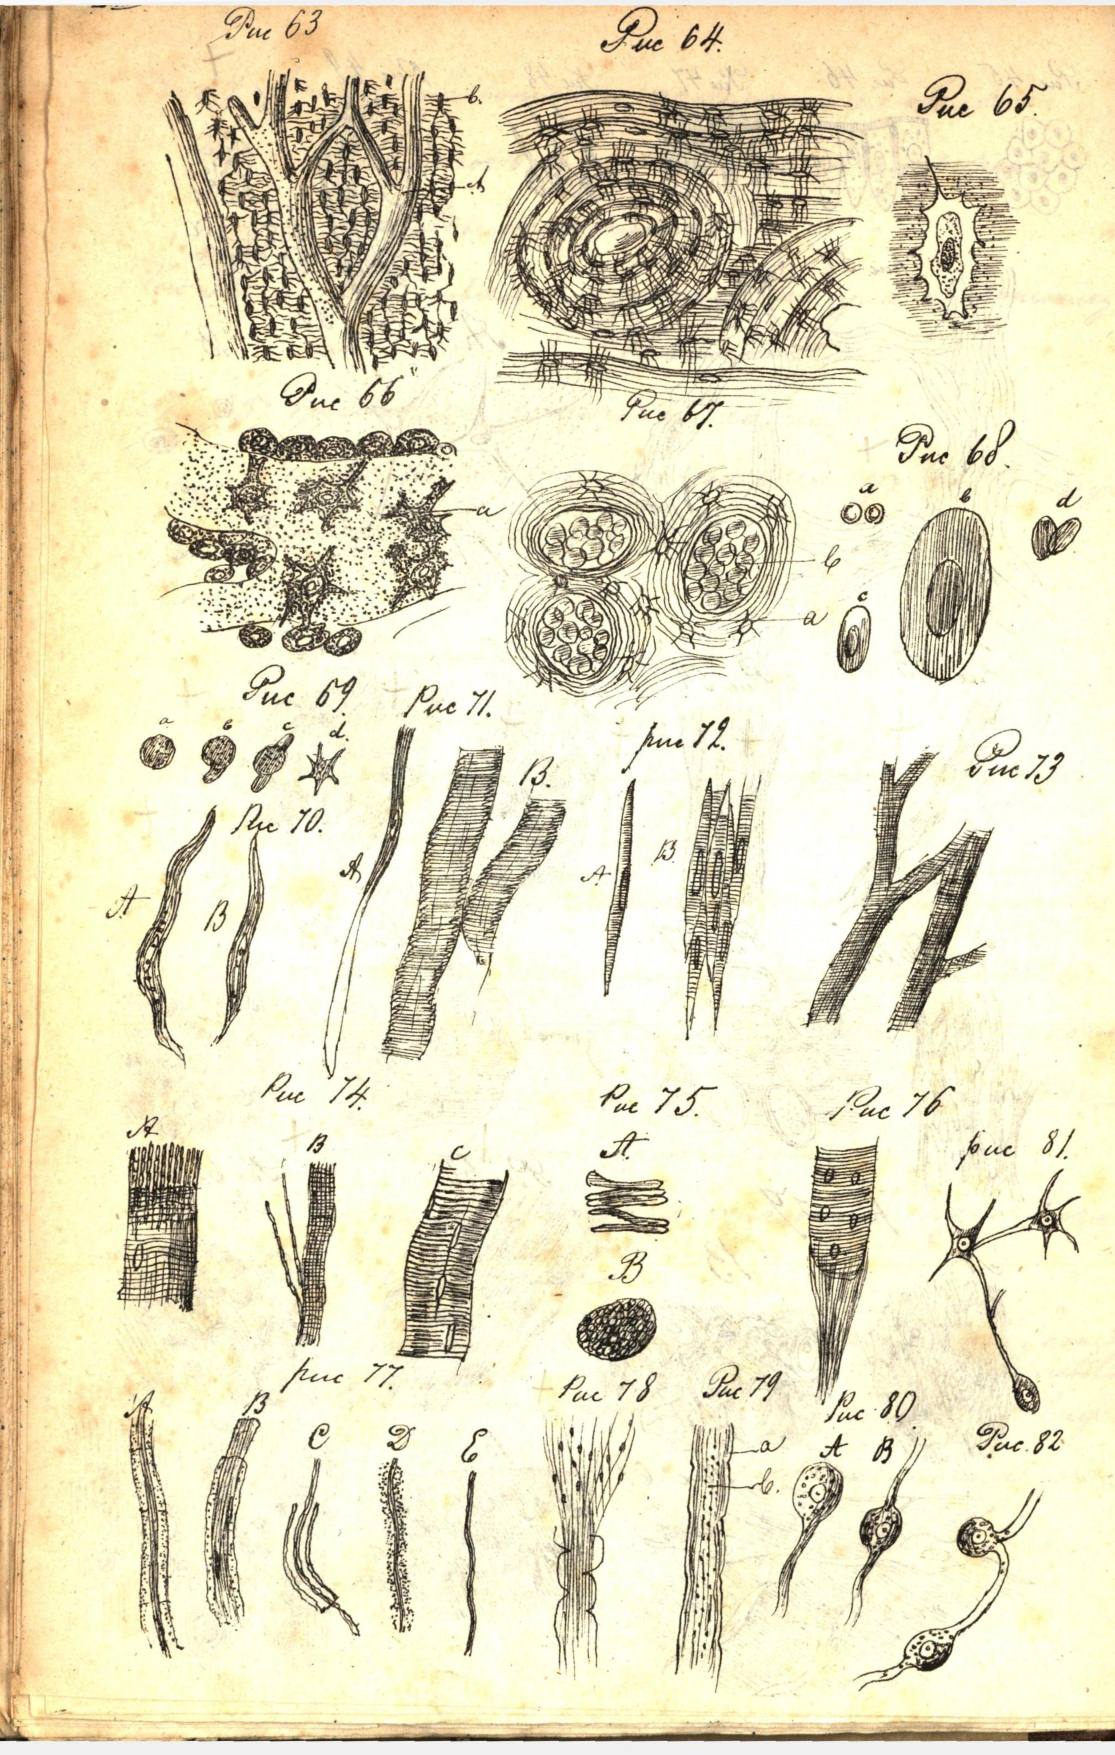 Рис 63
Рис 64.
Рис 65.
b.
A
Рис 66
Рис 67.
Рис 68.
a
b
a
c
a
b
d
Рис 69.
a
b
c
d.
Рис 70.
A
B
Рис 71.
A
B.
рис 72.
A
B
Рис 73
Рис 74.
A
B
C
Рис 75.
A.
B
Рис 76
рис 81.
рис 77.
A
B
C
D
E
Рис 78
Рис 79
a
b.
Рис 80.
A
B
Рис. 82